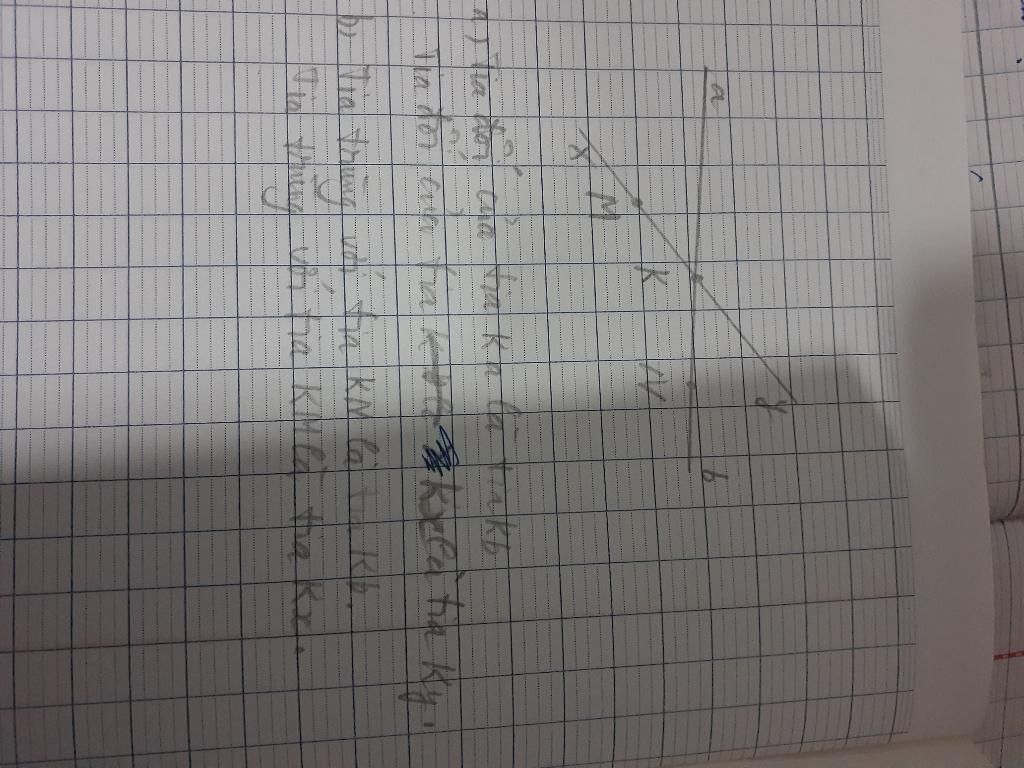 a
x
M
K
N
y
b
a) Tia đối của tia Ka là tia Kb
Tia đối của tia Kx là tia Ky.
b) Tia trùng với tia KN là tia Kb.
Tia trùng với tia KM là tia Kx.